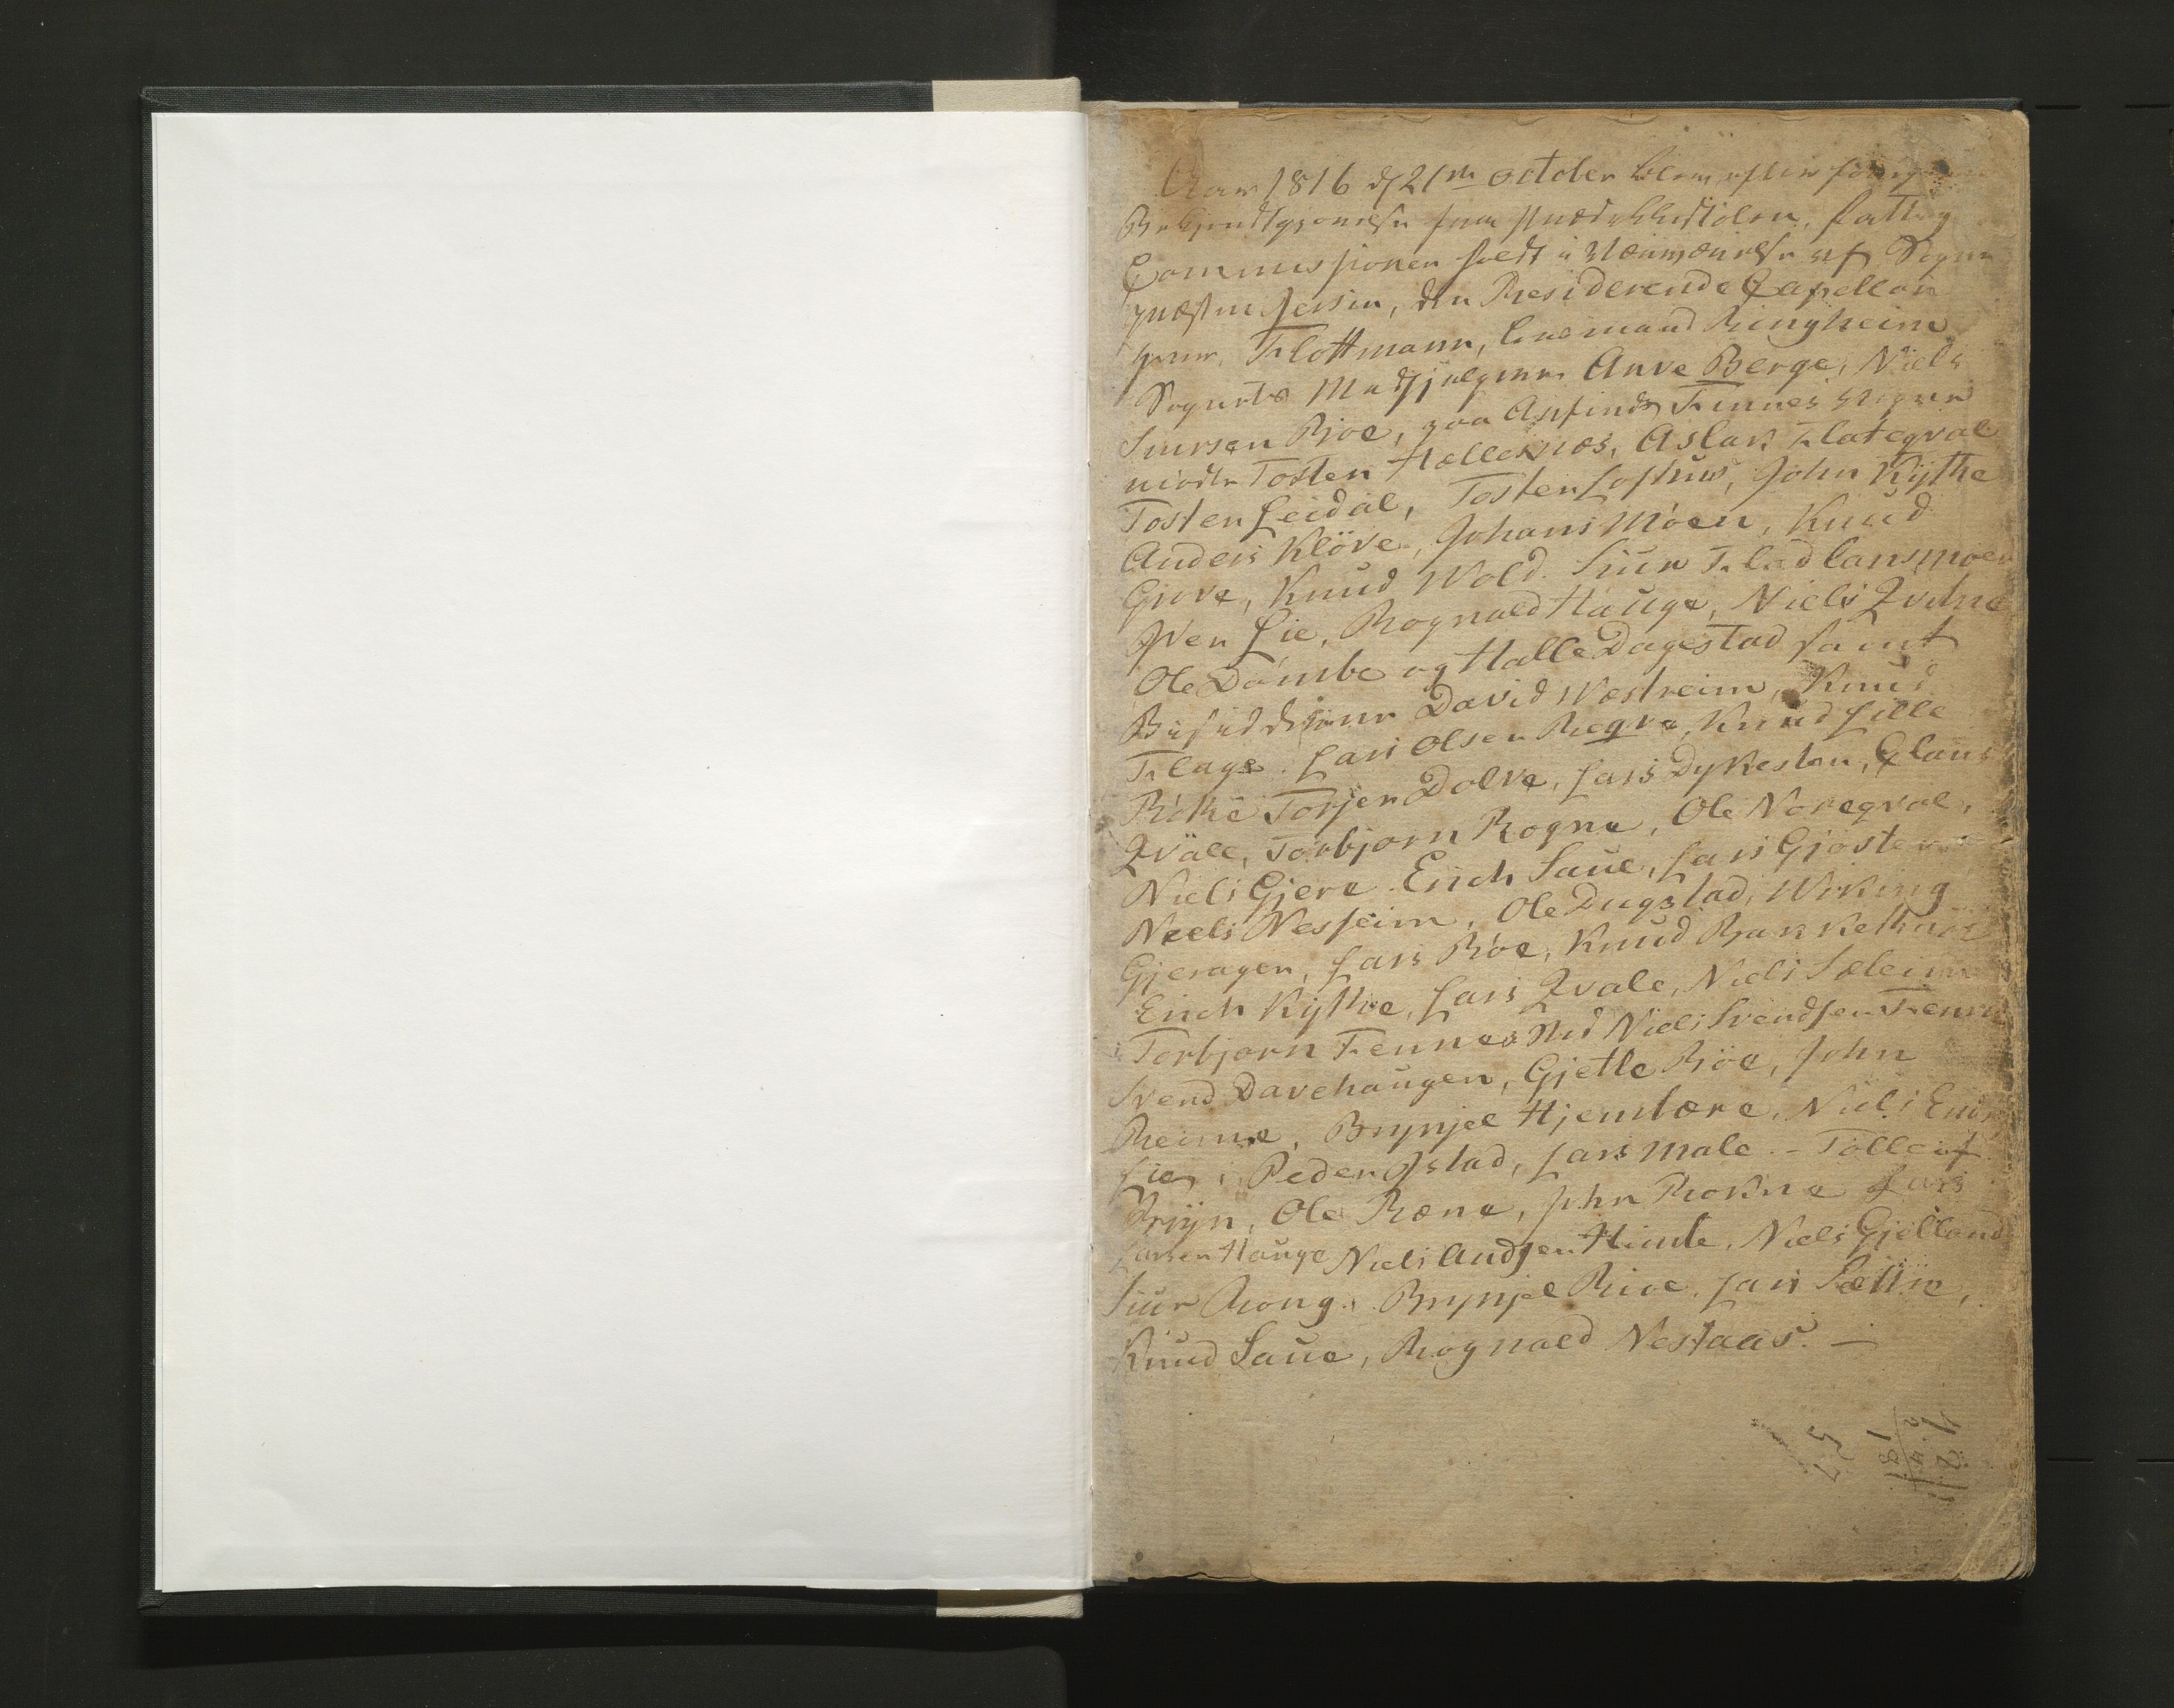 Aar 1816 d 21de october blev efter foreg
Bekjendtgjørelse fra Prædikestolen, Fattig
Commissionen holdt i Nærværelse af Sogne
præsten Jersin, den Residerende Capellan
Herr Flottmann, Lensmand Ringheim
Sognets Medhjælpere Anve Berge, Niels
Siursen Rjoe, paa Asfinds Finnes Vegne
mødte Tosten Hellesnæs, Aslak Flateqval
Tosten Leidal, Tosten Lofthus, John Kythe
Anders Klöve, Johans Möen, Knud
Grove, Knud Wold. Siur Fladlansmoen
Iver Lie, Rognald Hauge, Niels Qvitne
Ole Dömbe og Halle Dagestad samt
Besidderne David Wæstreim, Knud
Flage. Lars Olsen Reqve, Knud Lille
Röke Torjer Dolve, Lars Dykesten, Claus
Qväle, Torbjorn Rogne, Ole Noreqval,
Niels Gjere. Erich Saue, Lars Gjösten
Neels Nesheim, Ole Dugstad, Wiking
Gjeragen, Lars Röe, Knud Rakkethun
Erich Kythe, Lars Qvale, Niels Sæleim
Torbjorn Fennes Ned Niels Svendsen Fenne
Svend Davehaugen, Gjetle Röe, John
Reime, Brynjel Hjemlære, Niels Ends
Lie, Peder Istad, Lars Male. - Tölleif
Bryn, Ole Ræne, John Rokne Lars
Larsen Hauge Niels Andsen Himle. Niels Gjelland
Siur Rong. Brynjel Rioe. Lars Sætire,
Knud Saue, Rognald Nestaas. —